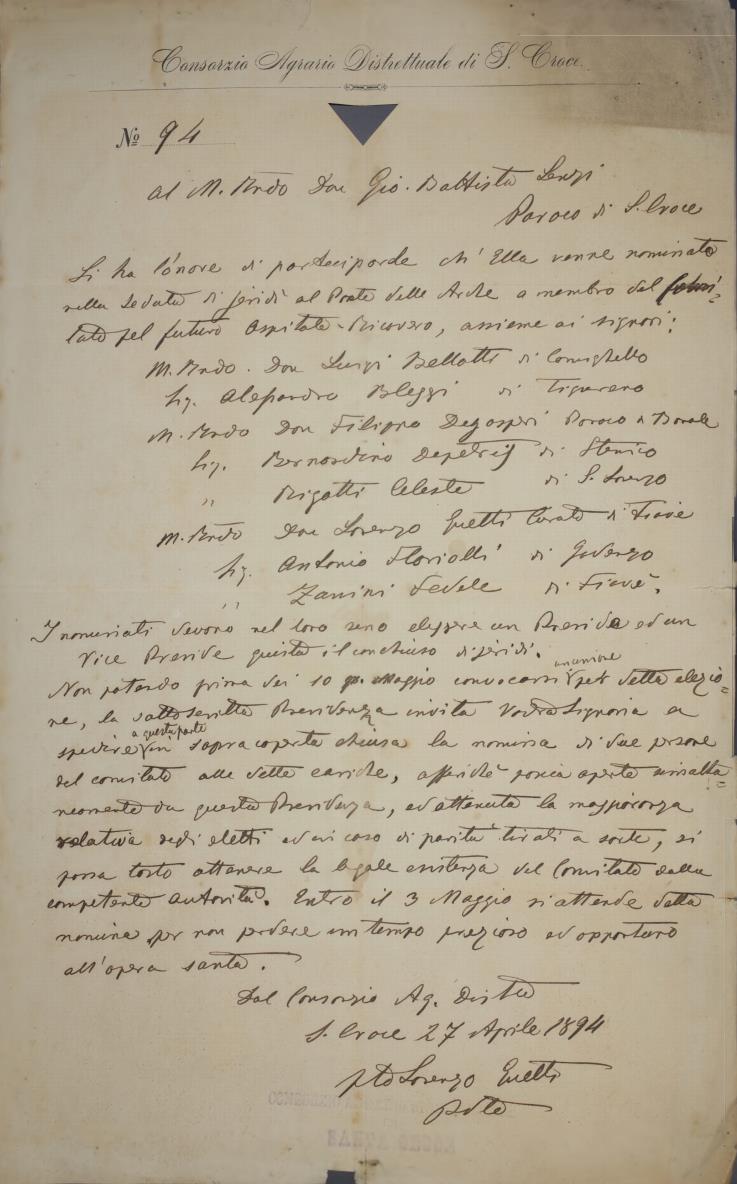 Consorzio Agrario Distrettuale di S. Croce.
No 94
Al M. Rndo Don Gio. Battista Lenzi
Paroco di S. Croce
Si ha l'onore di parteciparle ch' Ella venne nominato
nella seduta di jeridì al Prato delle Arche a membro del Comi-
tato pel futuro Ospitale-Ricovero, assieme ai signori:
M. Rndo. Don Luigi Bellotti di Comighello
Sig. Alessandro Bleggi di Tignerone
M. Rndo Don Filippo Degasperi Paroco a Banale
Sig. Bernardino Depetris di Stenico
" Rigotti Celeste di S. Lorenzo
M. Rndo Don Lorenzo Guetti Curato di Fiavè
Sig. Antonio Floriolli di Godenzo
" Zanini Fedele di Fiavè.
I nominati devono nel loro seno eleggere un Preside ed un
Vice Preside giusta il conchiuso di jeridì.
Non potendo prima dei 10 Maggio convocarsi unione per detta elezio-
ne, la sottoscritta Presidenza invita Vostra Signoria a
spedire a questa parte in sopra coperta chiusa la nomina di due persone
del comitato alle dette cariche, affinchè poscia aperte simulta-
neamente da questa Presidenza, ed ottenuta la maggioranza
relativa degli eletti ed in caso di parità tirati a sorte, si
possa tosto ottenere la legale esistenza del Comitato dalla
competente Autorità. Entro il 3 Maggio si attende detta
nomina per non perdere un tempo prezioso ed opportuno
all'opera santa.
Dal Consorzio Ag. Distle
S. Croce 27 Aprile 1894
pto Lorenzo Guetti
Pdte
SANTA CROCE